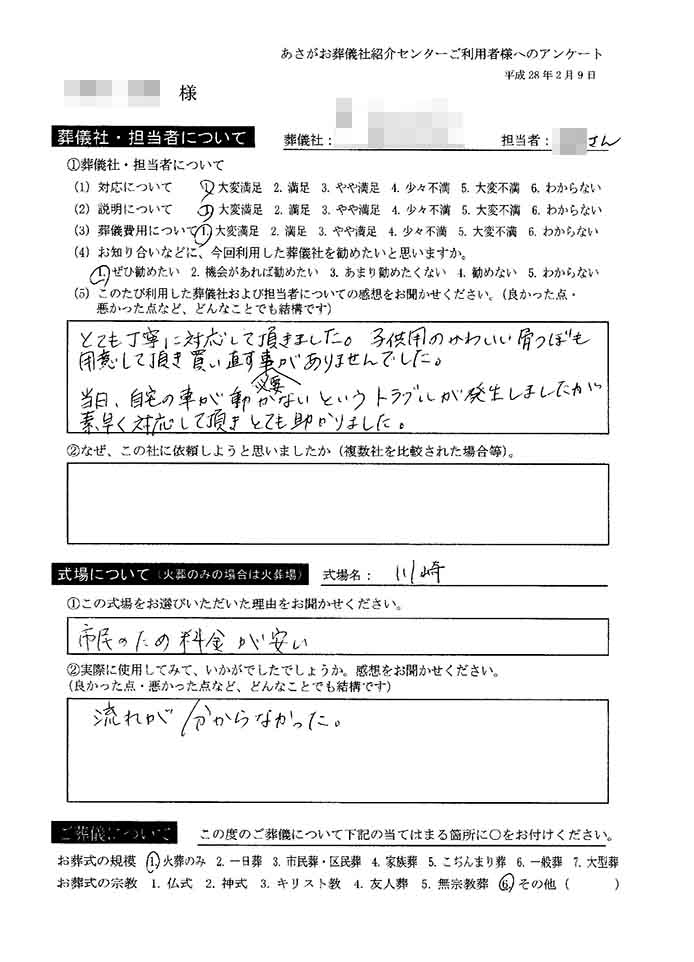 あさがお葬儀社紹介センターご利用者様へのアンケート
平成28年2月9日
様
葬儀社・担当者について 葬儀社： 担当者： さん
①葬儀社・担当者について
(1) 対応について 1. 大変満足 2. 満足 3. やや満足 4. 少々不満 5. 大変不満 6. わからない
(2) 説明について 1. 大変満足 2. 満足 3. やや満足 4. 少々不満 5. 大変不満 6. わからない
(3) 葬儀費用について 1. 大変満足 2. 満足 3. やや満足 4. 少々不満 5. 大変不満 6. わからない
(4) お知り合いなどに、今回利用した葬儀社を勧めたいと思いますか。
1. ぜひ勧めたい 2. 機会があれば勧めたい 3. あまり勧めたくない 4. 勧めない 5. わからない
(5) このたび利用した葬儀社および担当者についての感想をお聞かせください。（良かった点・
悪かった点など、どんなことでも結構です）
とても丁寧に対応して頂きました。子供用のかわいい骨つぼも
用意して頂き買い直す事がありませんでした。
必要
当日、自宅の車が動かないというトラブルが発生しましたが
素早く対応して頂きとても助かりました。
②なぜ、この社に依頼しようと思いましたか（複数社を比較された場合等）。
式場について（火葬のみの場合は火葬場） 式場名： 川崎
①この式場をお選びいただいた理由をお聞かせください。
市民のため料金が安い
②実際に使用してみて、いかがでしたでしょうか。感想をお聞かせください。
（良かった点・悪かった点など、どんなことでも結構です）
流れが分からなかった。
ご葬儀について この度のご葬儀について下記の当てはまる箇所に○をお付けください。
お葬式の規模 1. 火葬のみ 2. 一日葬 3. 市民葬・区民葬 4. 家族葬 5. こぢんまり葬 6. 一般葬 7. 大型葬
お葬式の宗教 1. 仏式 2. 神式 3. キリスト教 4. 友人葬 5. 無宗教葬 6. その他（ ）